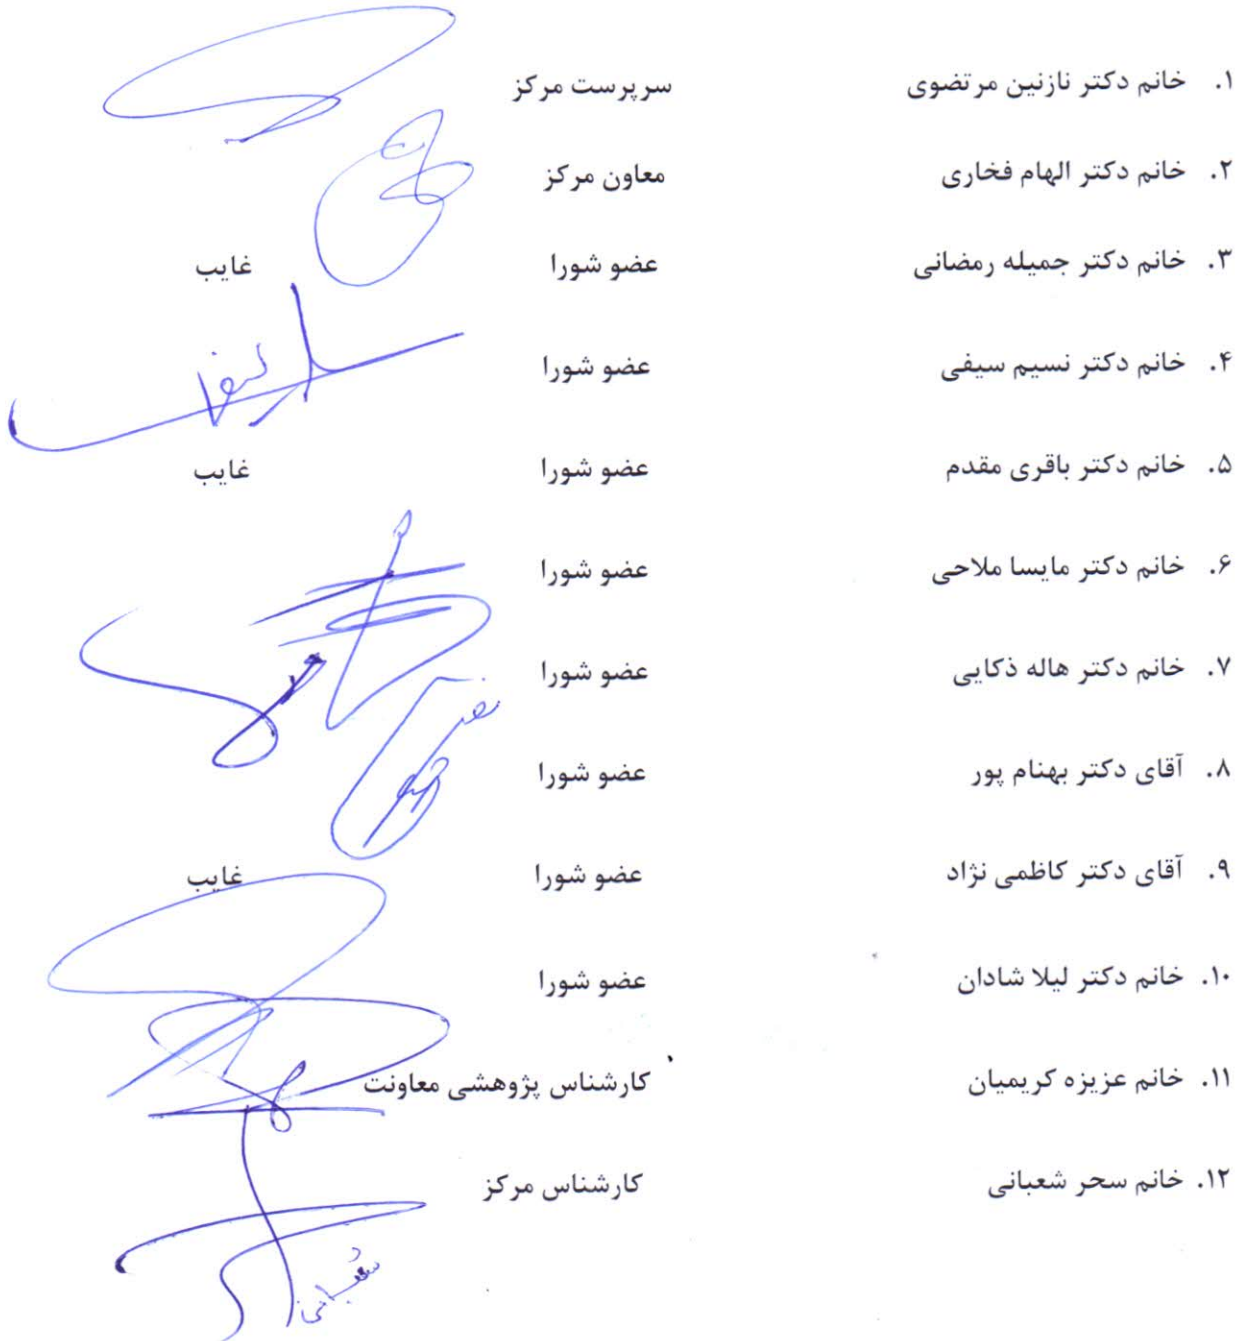 ۱. خانم دکتر نازنین مرتضوی سرپرست مرکز
۲. خانم دکتر الهام فخاری معاون مرکز
۳. خانم دکتر جمیله رمضانی عضو شورا غایب
۴. خانم دکتر نسیم سیفی عضو شورا
۵. خانم دکتر باقری مقدم عضو شورا غایب
۶. خانم دکتر مایسا ملاحی عضو شورا
۷. خانم دکتر هاله ذکایی عضو شورا
۸. آقای دکتر بهنام پور عضو شورا
۹. آقای دکتر کاظمی نژاد عضو شورا غایب
۱۰. خانم دکتر لیلا شادان عضو شورا
۱۱. خانم عزیزه کریمیان کارشناس پژوهشی معاونت
۱۲. خانم سحر شعبانی کارشناس مرکز
شعبانی